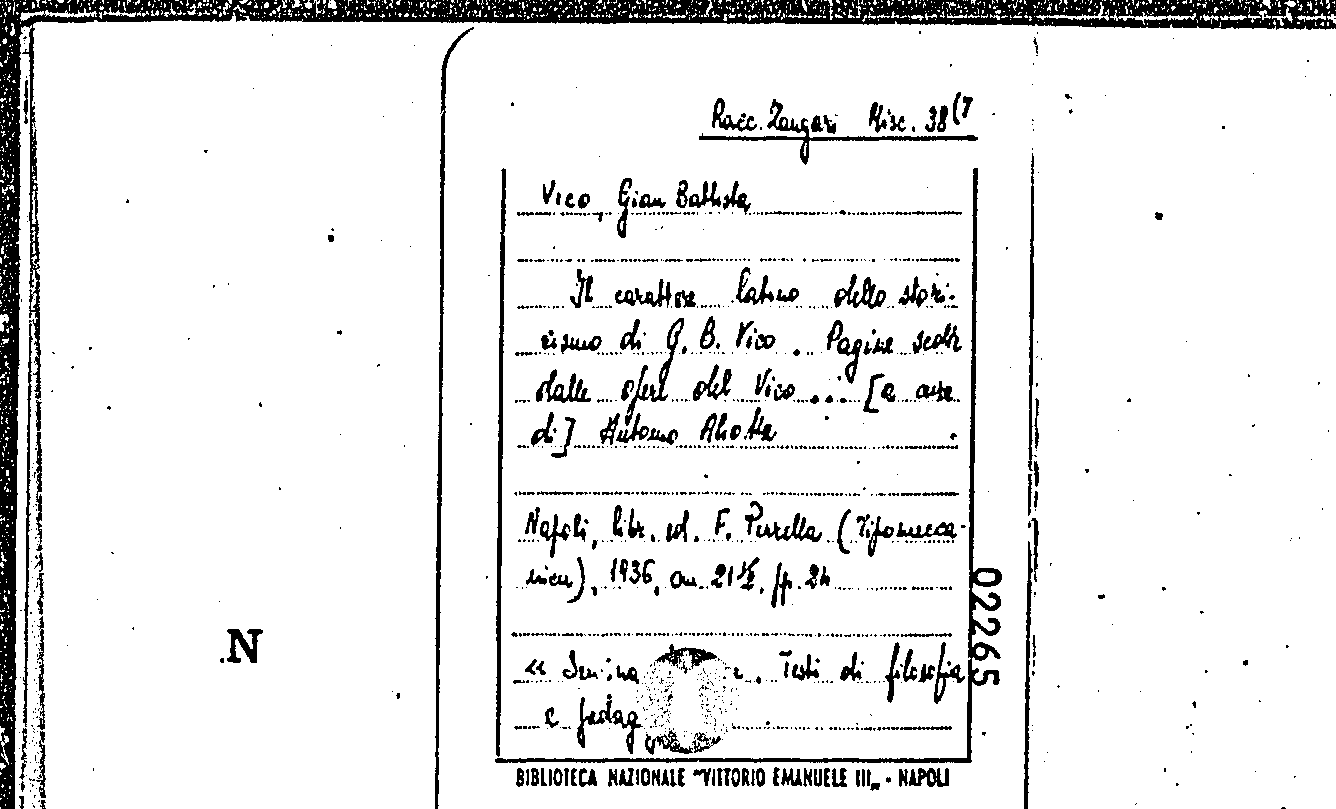 Racc. Zangari Misc. 38(7
Vico, Gian Battista
Il carattere latino dello stori-
cismo di G. B. Vico. Pagine scelte
dalle opere del Vico... [a cura
di] Antonio Aliotta.
Napoli, libr. ed. F. Perrella (Tipomecca-
nica), 1936, cm. 21½, pp. 24
02265
N
«
. Testi di filosofia
e pedag
BIBLIOTECA NAZIONALE "VITTORIO EMANUELE III„ - NAPOLI